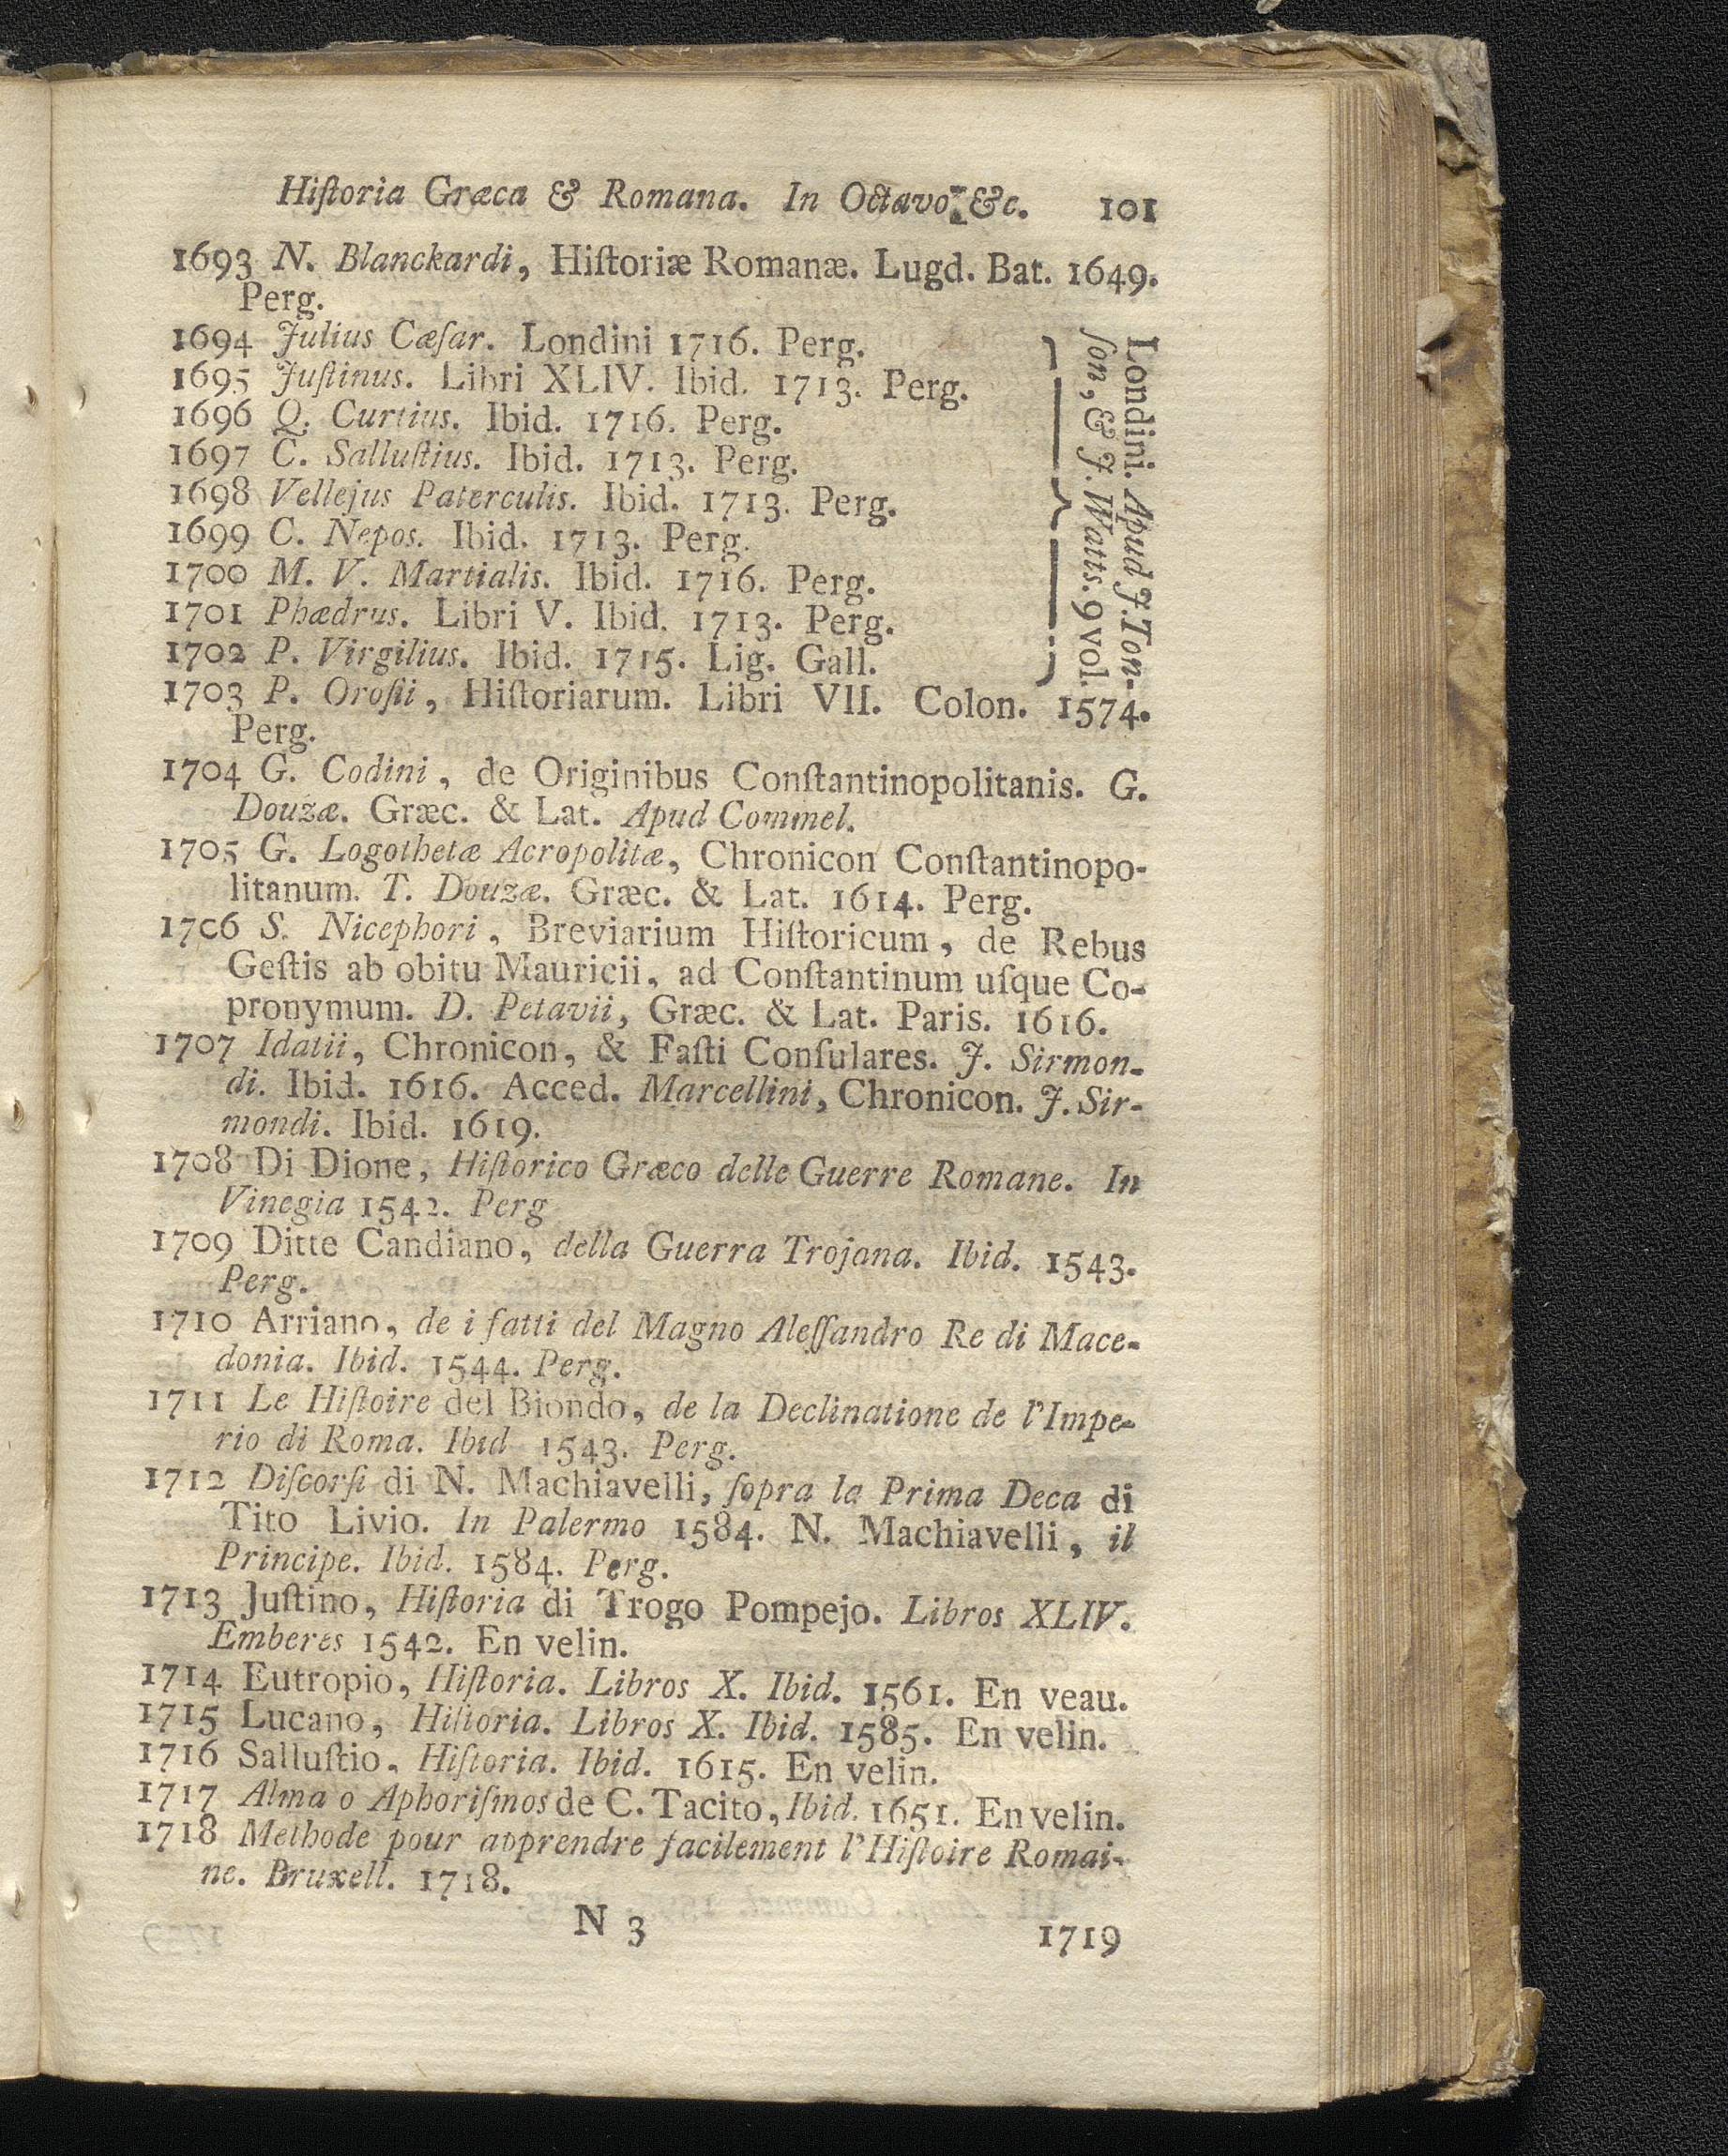 Hiſtoria Græca & Romana. In Octavo &c. 101
1693 N. Blanckardi, Hiſtoriæ Romanæ. Lugd. Bat. 1649.
Perg.
1694 Julius Cæſar. Londini 1716. Perg.
1695 Juſtinus. Libri XLIV. Ibid. 1713. Perg.
1696 Q. Curtius. Ibid. 1716. Perg.
1697 C. Salluſtius. Ibid. 1713. Perg.
1698 Vellejus Paterculis. Ibid. 1713. Perg.
1699 C. Nepos. Ibid. 1713. Perg.
1700 M. V. Martialis. Ibid. 1716. Perg.
1701 Phædrus. Libri V. Ibid. 1713. Perg.
1702 P. Virgilius. Ibid. 1715. Lig. Gall.
Londini. Apud J. Ton-
ſon, & J. Watts. 9 vol.
1703 P. Oroſii, Hiſtoriarum. Libri VII. Colon. 1574.
Perg.
1704 G. Codini, de Originibus Conſtantinopolitanis. G.
Douzæ. Græc. & Lat. Apud Commel.
1705 G. Logothetæ Acropolitæ, Chronicon Conſtantinopo-
litanum. T. Douzæ. Græc. & Lat. 1614. Perg.
1706 S. Nicephori, Breviarium Hiſtoricum, de Rebus
Geſtis ab obitu Mauricii, ad Conſtantinum uſque Co-
pronymum. D. Petavii, Græc. & Lat. Paris. 1616.
1707 Idatii, Chronicon, & Faſti Conſulares. J. Sirmon-
di. Ibid. 1616. Acced. Marcellini, Chronicon. J. Sir-
mondi. Ibid. 1619.
1708 Di Dione, Hiſtorico Græco delle Guerre Romane. In
Vinegia 1542. Perg
1709 Ditte Candiano, della Guerra Trojana. Ibid. 1543.
Perg.
1710 Arriano, de i fatti del Magno Aleſſandro Re di Mace-
donia. Ibid. 1544. Perg.
1711 Le Hiſtoire del Biondo, de la Declinatione de l'Impe-
rio di Roma. Ibid 1543. Perg.
1712 Diſcorſi di N. Machiavelli, ſopra la Prima Deca di
Tito Livio. In Palermo 1584. N. Machiavelli, il
Principe. Ibid. 1584. Perg.
1713 Juſtino, Hiſtoria di Trogo Pompejo. Libros XLIV.
Emberes 1542. En velin.
1714 Eutropio, Hiſtoria. Libros X. Ibid. 1561. En veau.
1715 Lucano, Hiſtoria. Libros X. Ibid. 1585. En velin.
1716 Salluſtio, Hiſtoria. Ibid. 1615. En velin.
1717 Alma o Aphoriſmos de C. Tacito, Ibid. 1651. En velin.
1718 Methode pour apprendre facilement l'Hiſtoire Romai-
ne. Bruxell. 1718.
N 3 1719